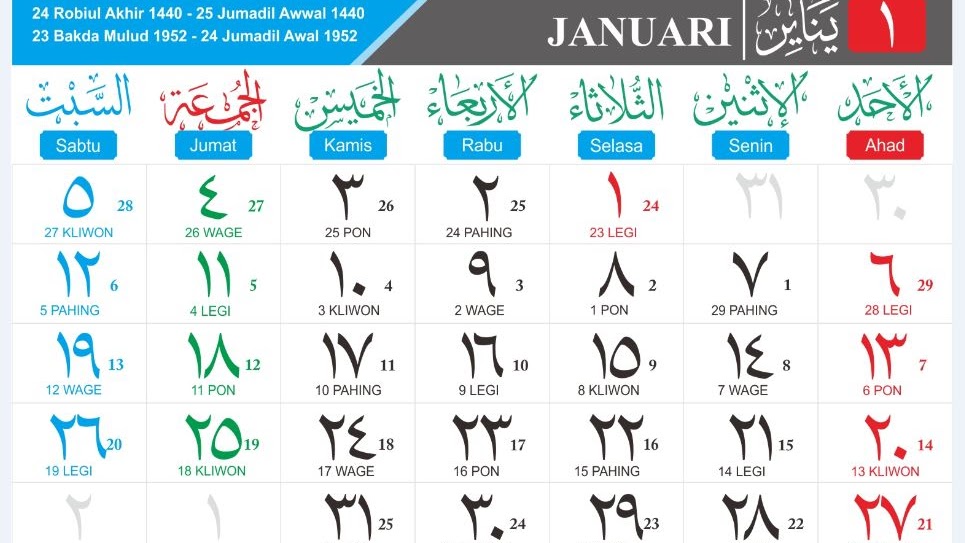 24 Robiul Akhir 1440 - 25 Jumadil Awwal 1440
23 Bakda Mulud 1952 - 24 Jumadil Awal 1952
JANUARI يَنَايِر ١
الأَحَد الإِثْنَيْن الثُّلَاثَاء الأَرْبِعَاء الخَمِيْس الجُمُعَة السَّبْت
Ahad Senin Selasa Rabu Kamis Jumat Sabtu
٣٠ ٣١ ١ 24 ٢ 25 ٣ 26 ٤ 27 ٥ 28
23 LEGI 24 PAHING 25 PON 26 WAGE 27 KLIWON
٦ 29 ٧ 1 ٨ 2 ٩ 3 ١٠ 4 ١١ 5 ١٢ 6
28 LEGI 29 PAHING 1 PON 2 WAGE 3 KLIWON 4 LEGI 5 PAHING
١٣ 7 ١٤ 8 ١٥ 9 ١٦ 10 ١٧ 11 ١٨ 12 ١٩ 13
6 PON 7 WAGE 8 KLIWON 9 LEGI 10 PAHING 11 PON 12 WAGE
٢٠ 14 ٢١ 15 ٢٢ 16 ٢٣ 17 ٢٤ 18 ٢٥ 19 ٢٦ 20
13 KLIWON 14 LEGI 15 PAHING 16 PON 17 WAGE 18 KLIWON 19 LEGI
٢٧ 21 ٢٨ 22 ٢٩ 23 ٣٠ 24 ٣١ 25 ١ ٢